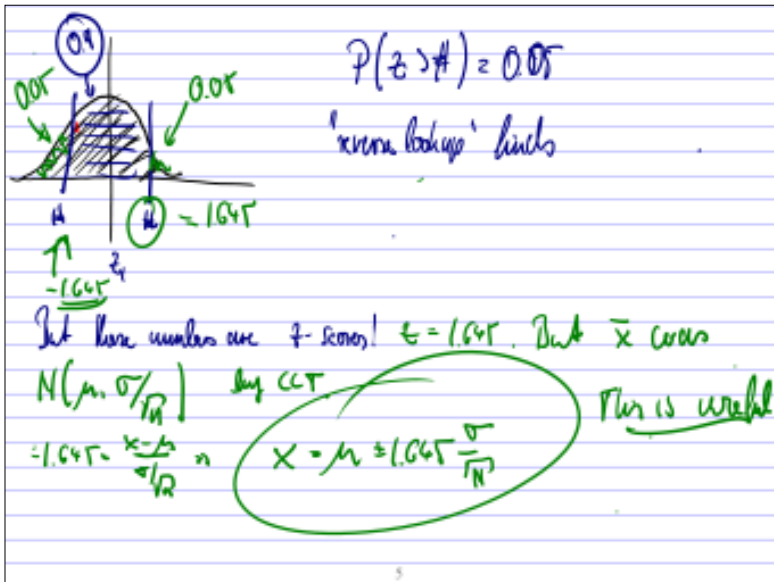 0.9
P(z > #) = 0.05
0.05
0.05
'reverse lookup' finds
# = 1.645
z
-1.645
But these numbers are z-scores! z = 1.645. But x̄ was
N(μ, σ/√N) by CLT
This is useful
±1.645 = x-μ/σ/√N
x = μ ± 1.645 σ/√N
5